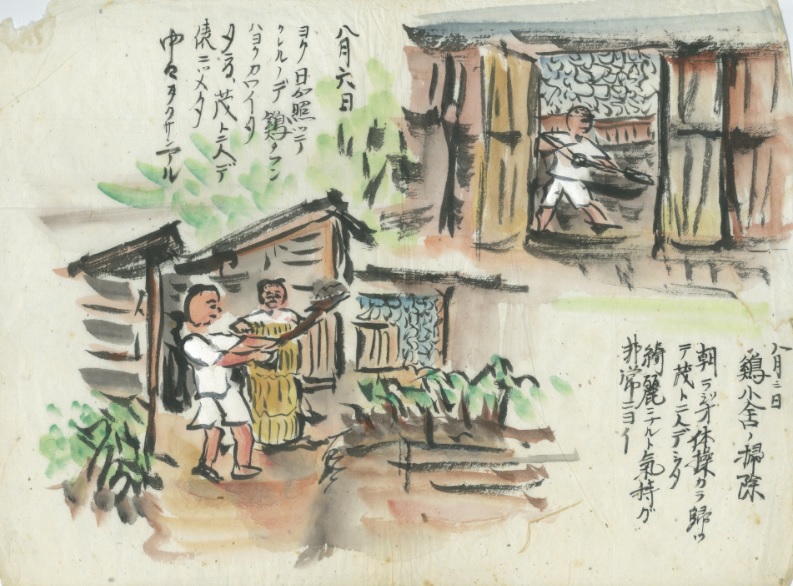 八月二日
鶏小舎ノ掃除
朝ラジオ体操カラ帰ッ
テ茂ト二人デシタ
綺麗ニナルト気持ガ
非常ニヨイ
八月六日
ヨク日ガ照ッテ
クレルノデ鶏ノフン
ハヨクカワイタ
夕方、茂ト二人デ
俵ニツメタ
中々タクサンアル